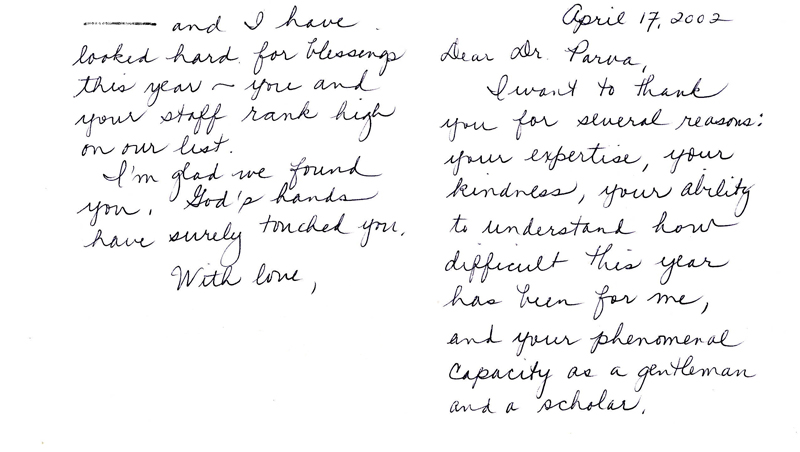 April 17, 2002
Dear Dr. Parva,
I want to thank
you for several reasons:
your expertise, your
kindness, your ability
to understand how
difficult this year
has been for me,
and your phenomenal
capacity as a gentleman
and a scholar.
and I have
looked hard for blessings
this year ~ you and
your staff rank high
on our list.
I'm glad we found
you. God's hands
have surely touched you.
With love,